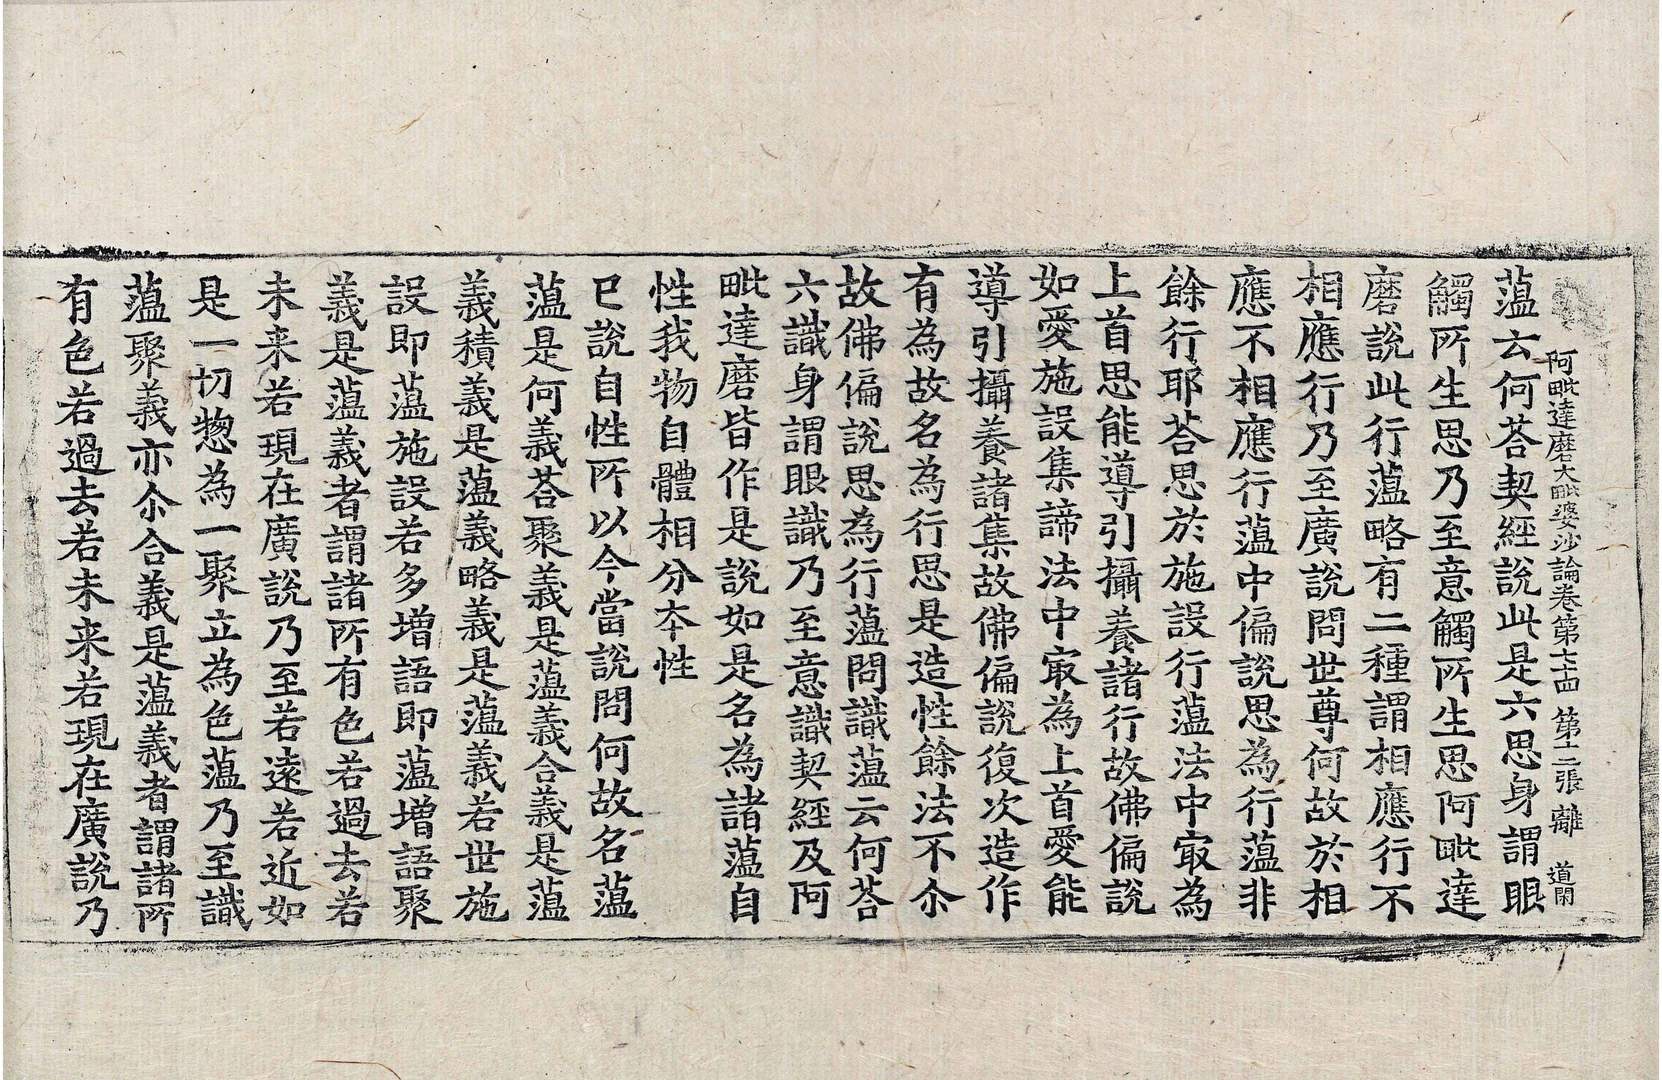 阿毗達磨大毗婆沙論卷第七十四 第十二張 離 道閑
薀云何荅契經說此是六思身謂眼
觸所生思乃至意觸所生思阿毗達
磨說此行薀略有二種謂相應行不
相應行乃至廣說問世尊何故於相
應不相應行薀中偏說思為行薀非
餘行耶荅思於施設行薀法中㝡為
上首思能導引攝養諸行故佛偏說
如愛施設集諦法中㝡為上首愛能
導引攝養諸集故佛偏說復次造作
有為故名為行思是造性餘法不尒
故佛偏說思為行薀問識薀云何荅
六識身謂眼識乃至意識契經及阿
毗達磨皆作是說如是名為諸薀自
性我物自體相分本性
已說自性所以今當說問何故名薀
薀是何義荅聚義是薀義合義是薀
義積義是薀義略義是薀義若世施
設即薀施設若多增語即薀增語聚
義是薀義者謂諸所有色若過去若
未来若現在廣說乃至若遠若近如
是一切惣為一聚立為色薀乃至識
薀聚義亦尒合義是薀義者謂諸所
有色若過去若未来若現在廣說乃